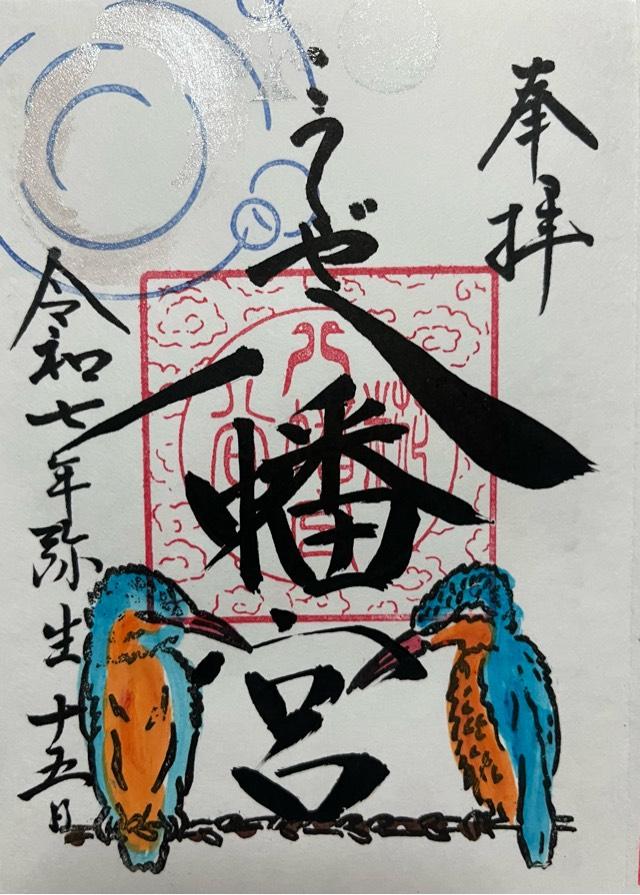 奉拝
八幡宮
令和七年弥生十五日